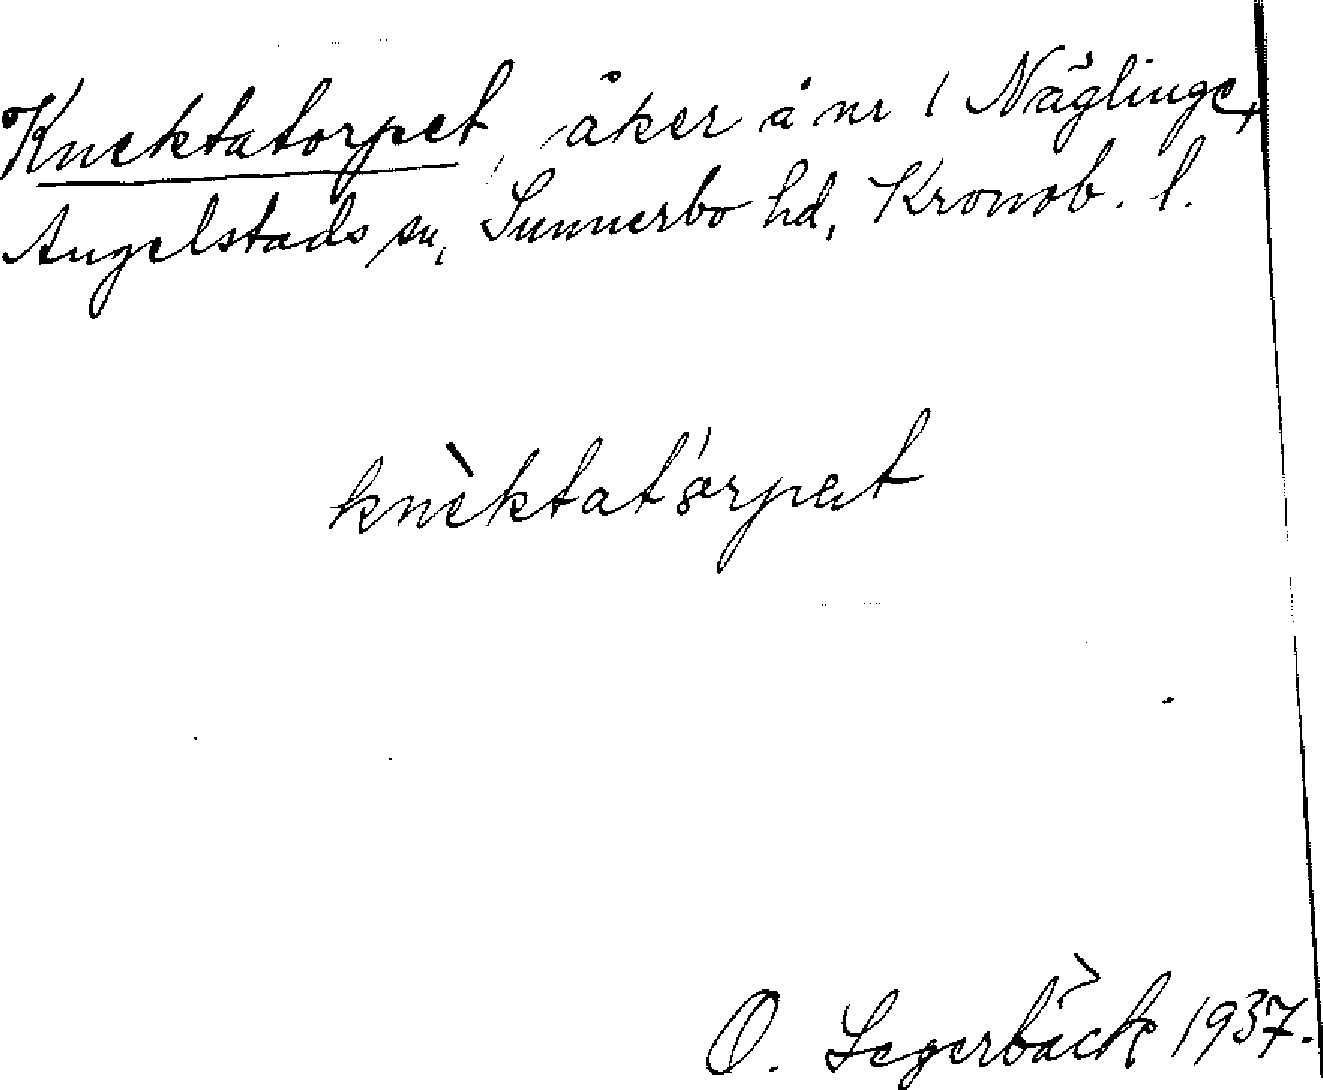 Knektatorpet, åker å nr 1 Näglinge,
Angelstads sn, Sunnerbo hd, Kronob. l.
knèktat'årpet
O. Segerbäck 1937.